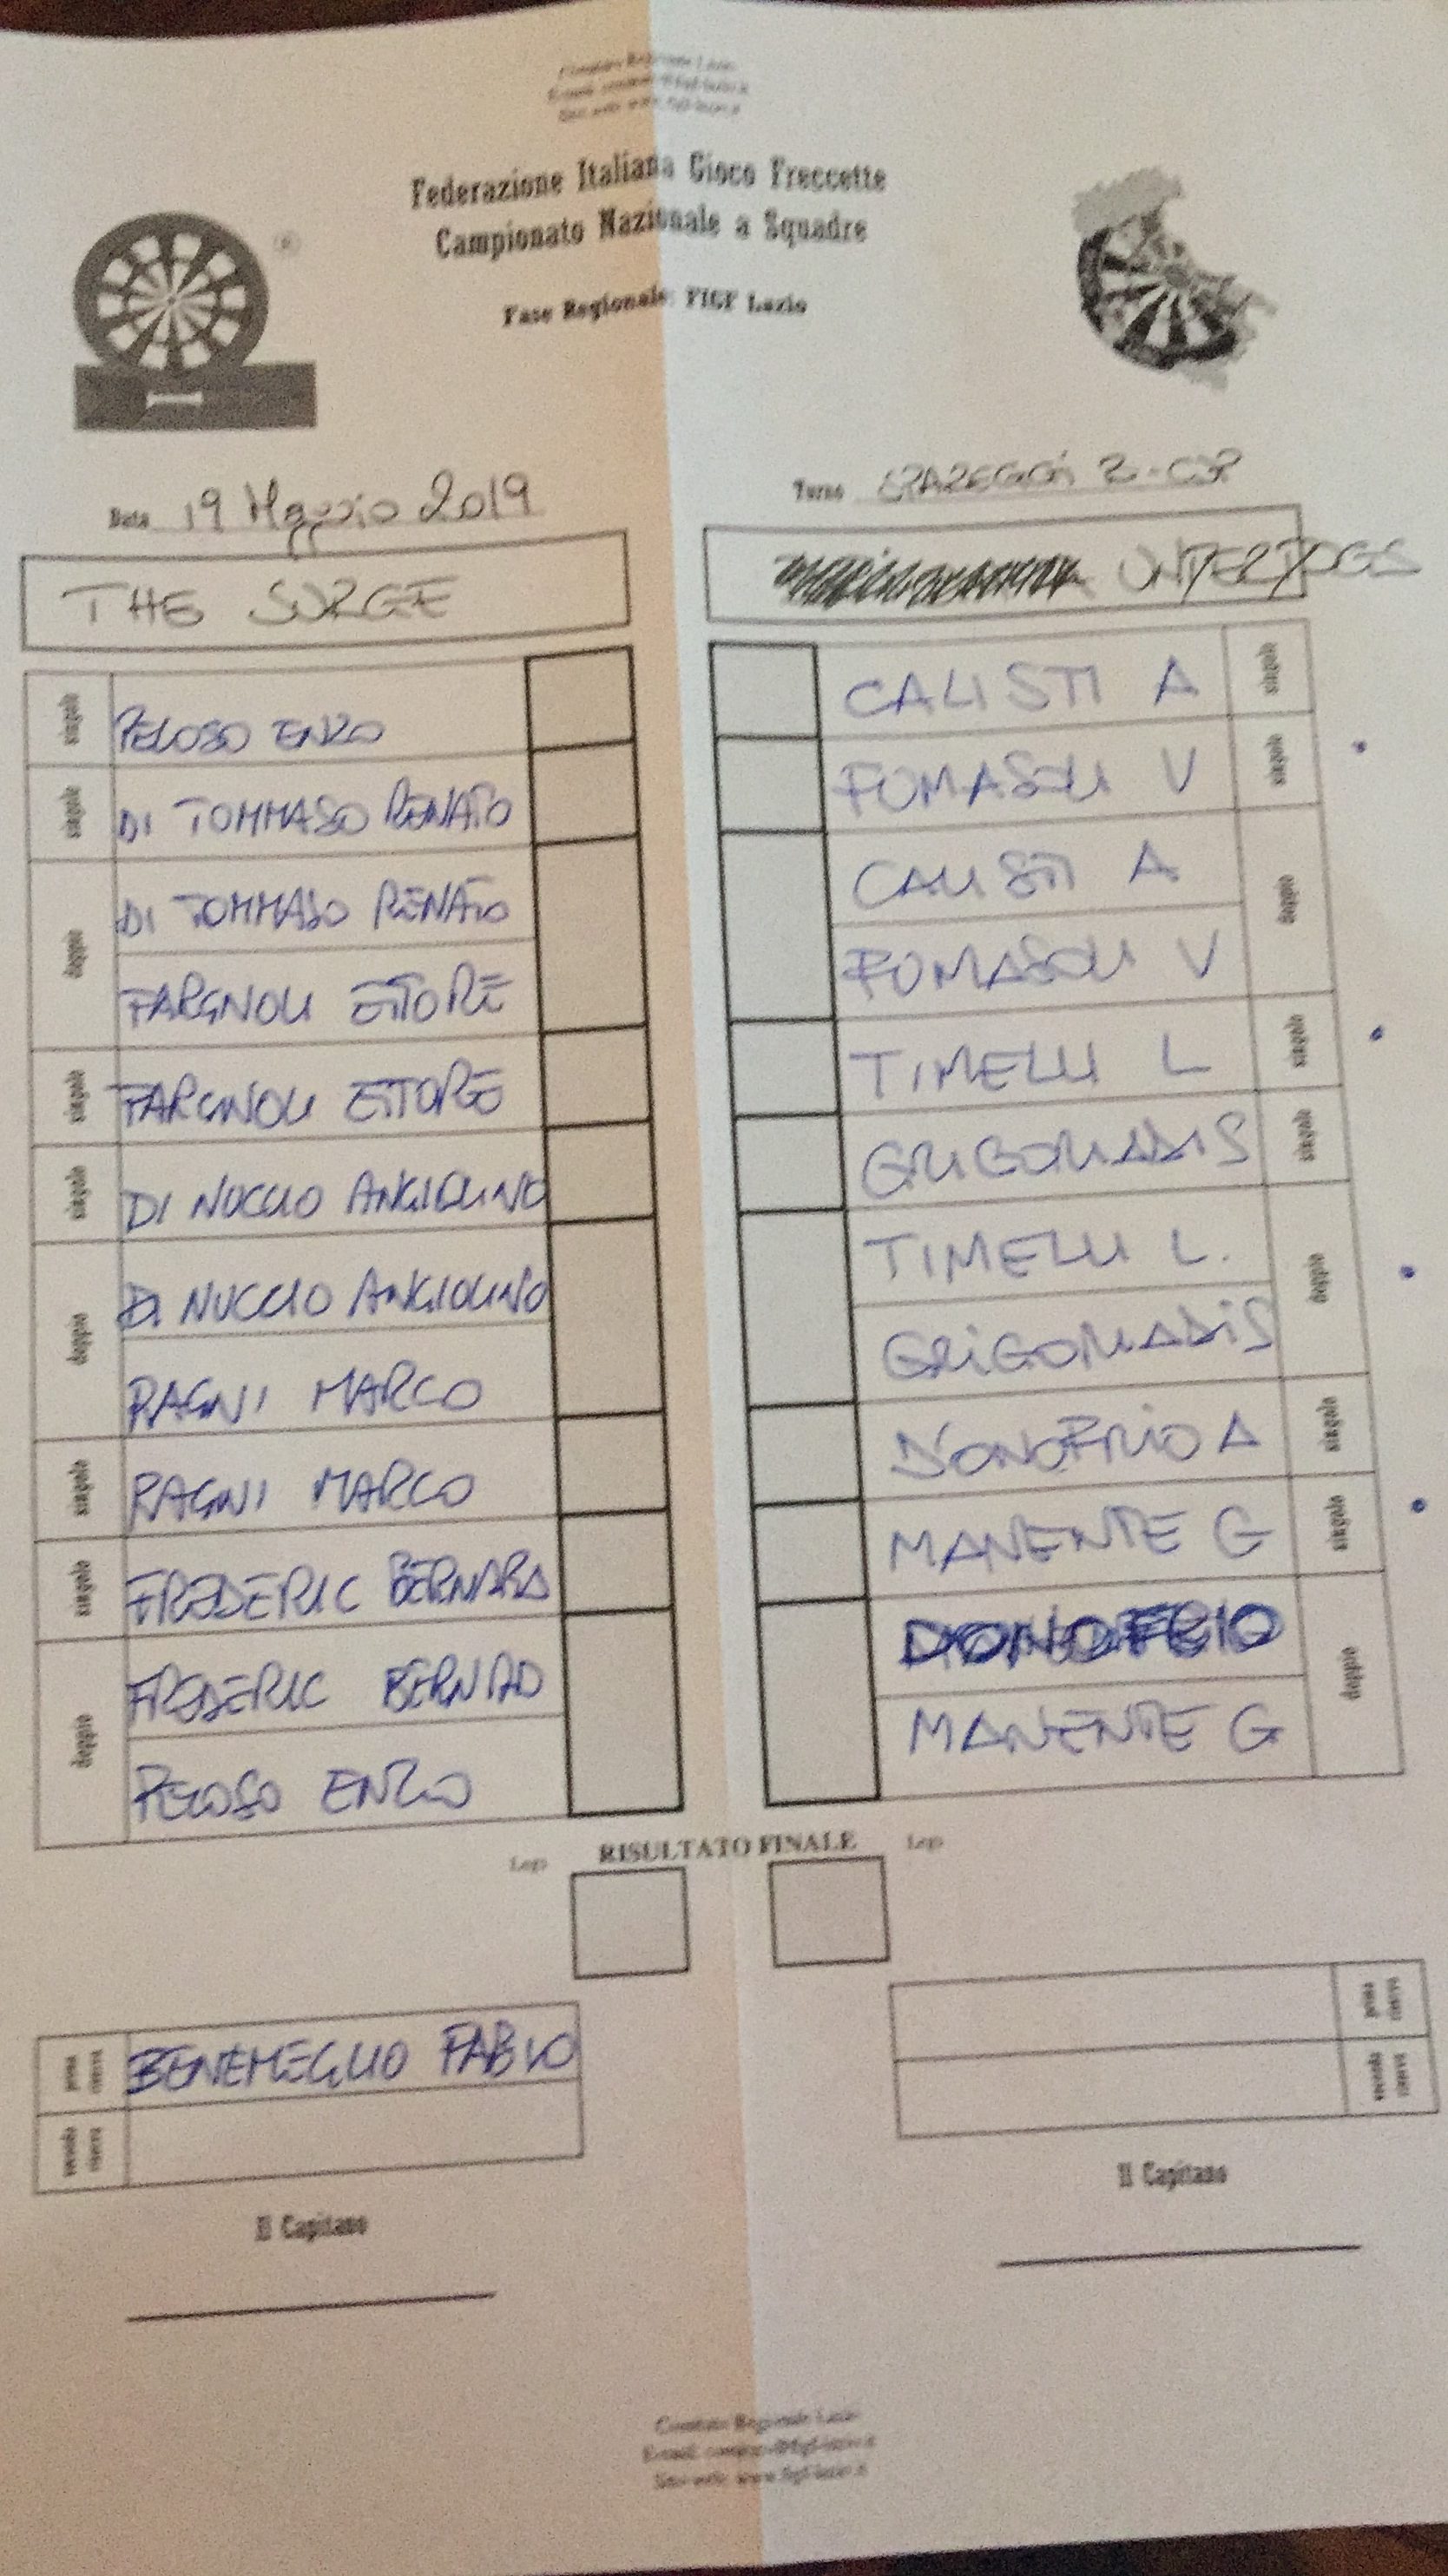 Comitato Regionale Lazio
Federazione Italiana Gioco Freccette
Campionato Nazionale a Squadre
Fase Regionale: FIGF Lazio
Data 19 Maggio 2019
Turno SPAREGGI
THE SURGE
singolo PELOSO ENZO
singolo DI TOMMASO RENATO
doppio DI TOMMASO RENATO
FARGNOLI ETTORE
singolo FARGNOLI ETTORE
singolo DI NUCCIO ANGIOLINO
doppio DI NUCCIO ANGIOLINO
RAGNI MARCO
singolo RAGNI MARCO
singolo FREDERIC BERNARD
doppio FREDERIC
PELOSO ENZO
CALISTI A singolo
FOMASOLI V singolo
CALISTI A doppio
FOMASOLI V
TIMELLI L singolo
singolo
TIMELLI L. doppio
D'ONOFRIO A singolo
MANENTE G singolo
DONOFRIO doppio
MANENTE G
Legs RISULTATO FINALE Legs
prima riserva BENEMEGLIO FABIO
seconda riserva
prima riserva
seconda riserva
Il Capitano
Il Capitano
Comitato Regionale Lazio